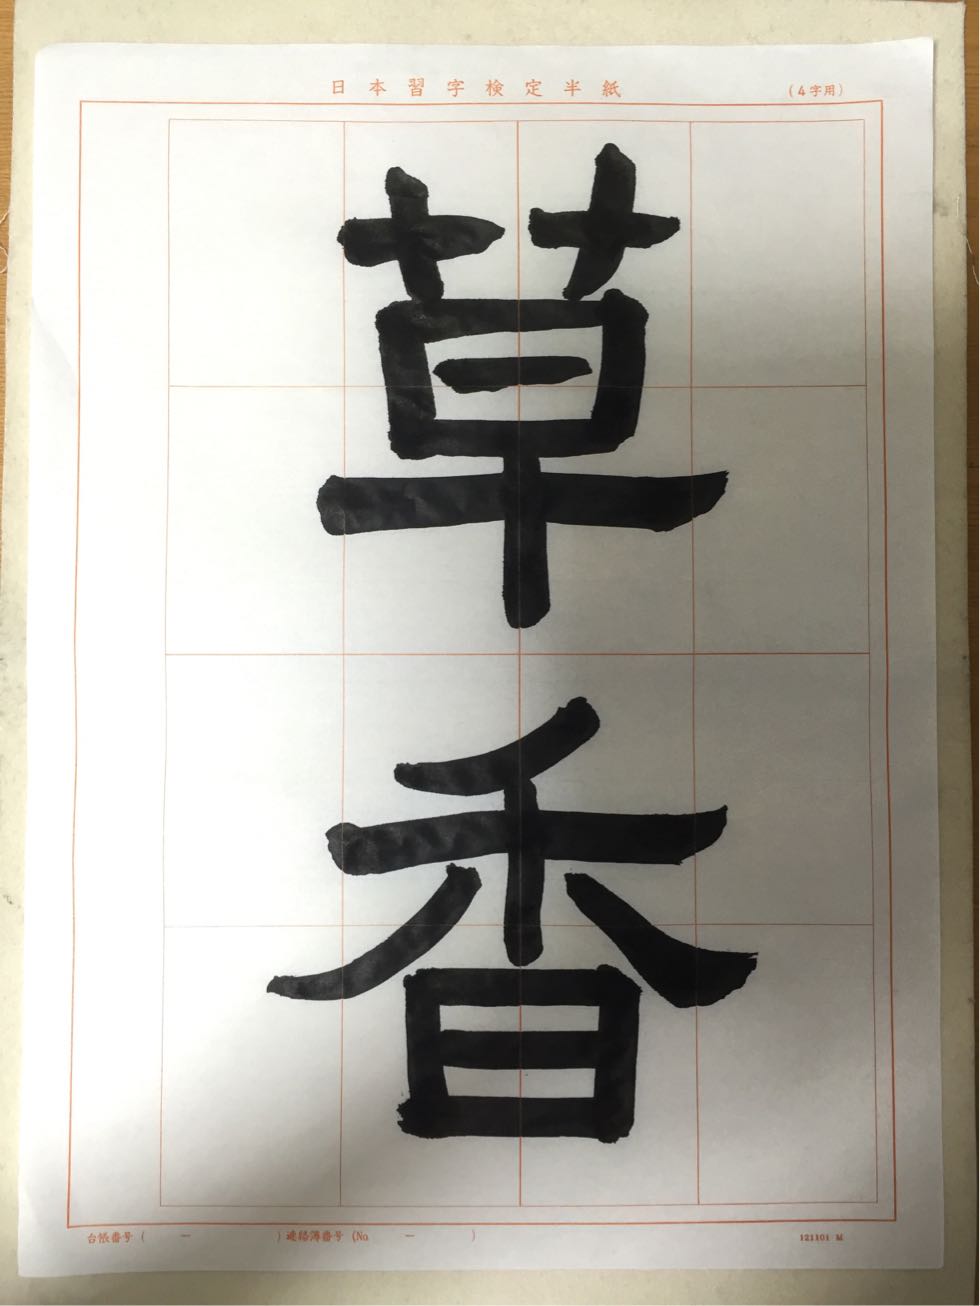 日本習字検定半紙
(4字用)
草香
台帳番号( ー )連絡簿番号(No ー )
121101 M